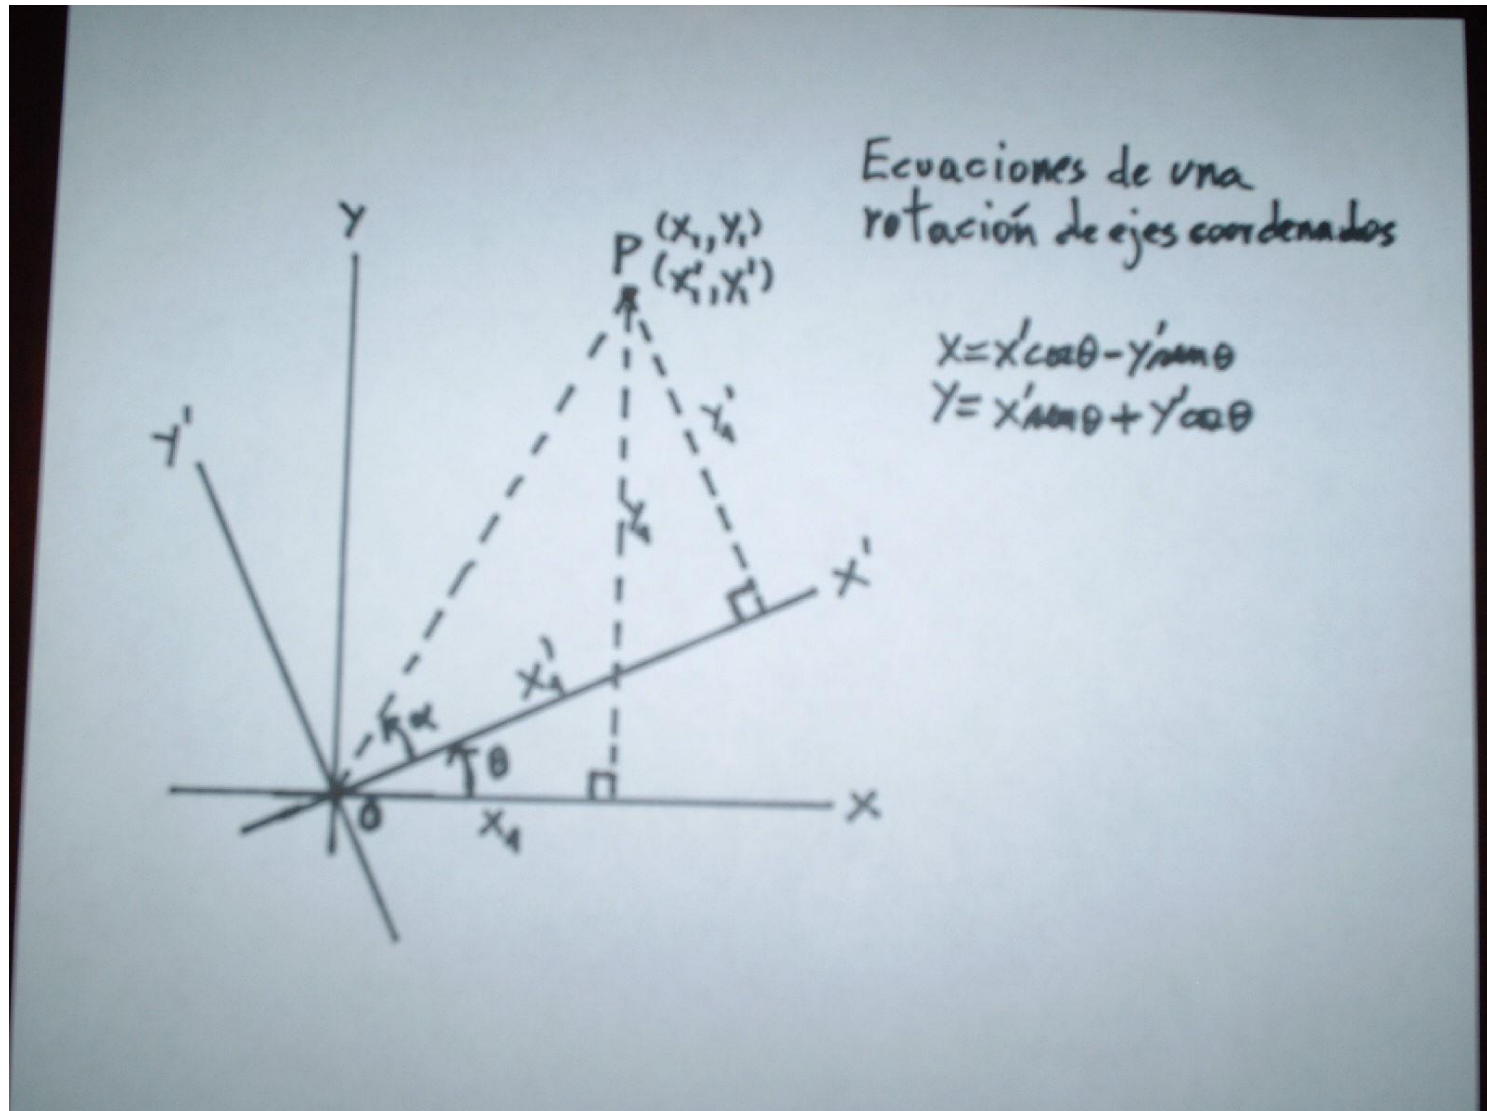 Ecuaciones de una
rotación de ejes coordenados
X=X'cosθ-Y'senθ
Y=X'senθ+Y'cosθ
Y
P (X₁,Y₁)
(X₁',Y₁')
Y'
Y₁'
Y₁
X'
X₁'
α
θ
O
X₁
X